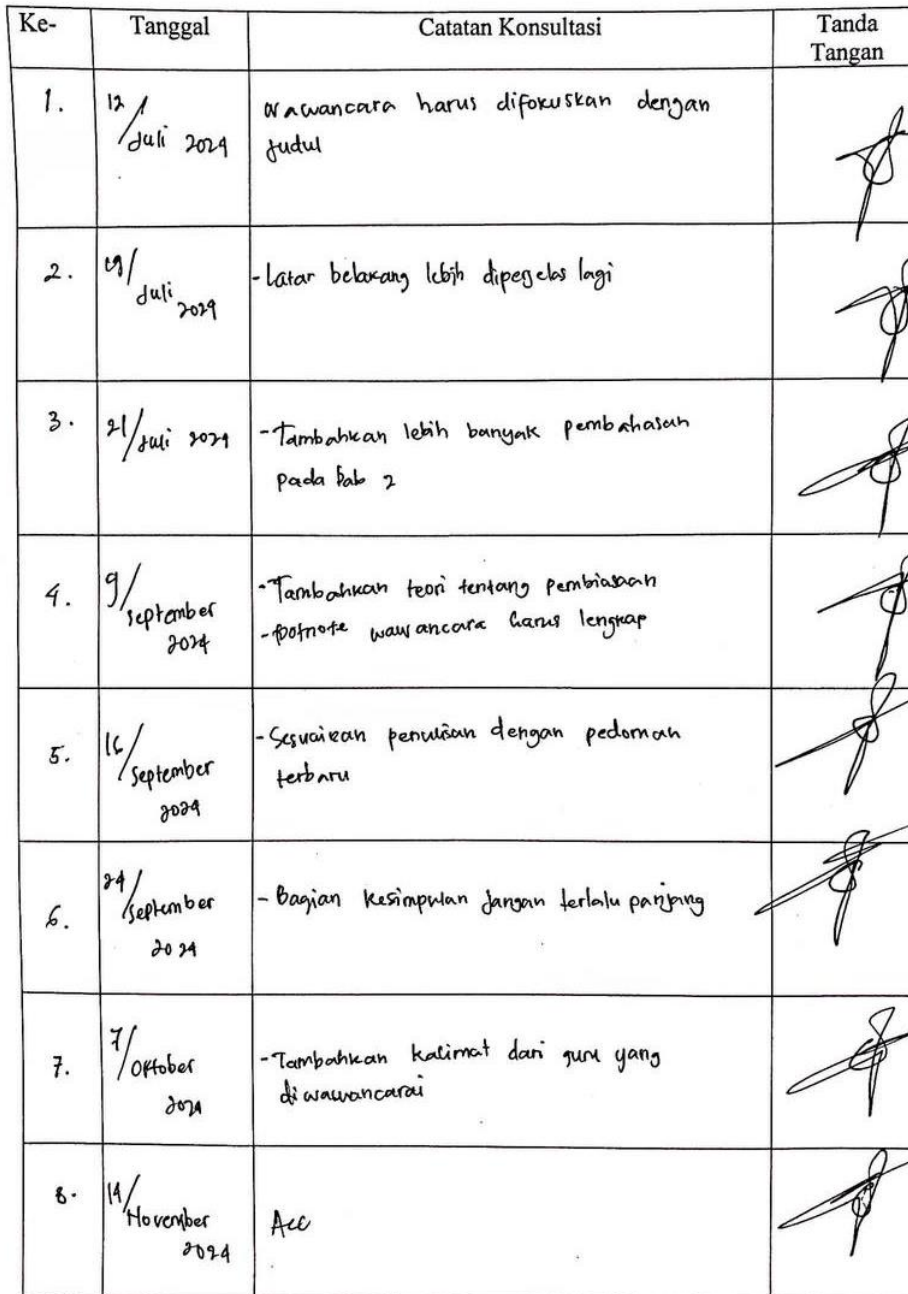 Ke- Tanggal Catatan Konsultasi Tanda Tangan
1. 12/Juli 2024 Wawancara harus difokuskan dengan
Judul
2. 19/Juli 2024 - Latar belakang lebih diperjelas lagi
3. 21/Juli 2024 - Tambahkan lebih banyak pembahasan
pada bab 2
4. 9/September 2024 - Tambahkan teori tentang pembiasaan
- footnote wawancara harus lengkap
5. 16/September 2024 - Sesuaikan penulisan dengan pedoman
terbaru
6. 24/September 2024 - Bagian kesimpulan jangan terlalu panjang
7. 7/Oktober 2024 - Tambahkan kalimat dari guru yang
diwawancarai
8. 14/November 2024 Acc